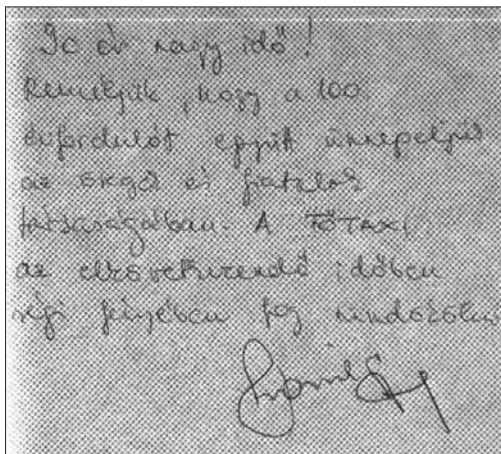 90 év nagy idő!
Reméljük, hogy a 100.
évfordulót együtt ünnepeljük
az öregek és fiatalok
társaságában. A FŐTAXI
az elkövetkezendő időben
régi fényében fog tündökölni